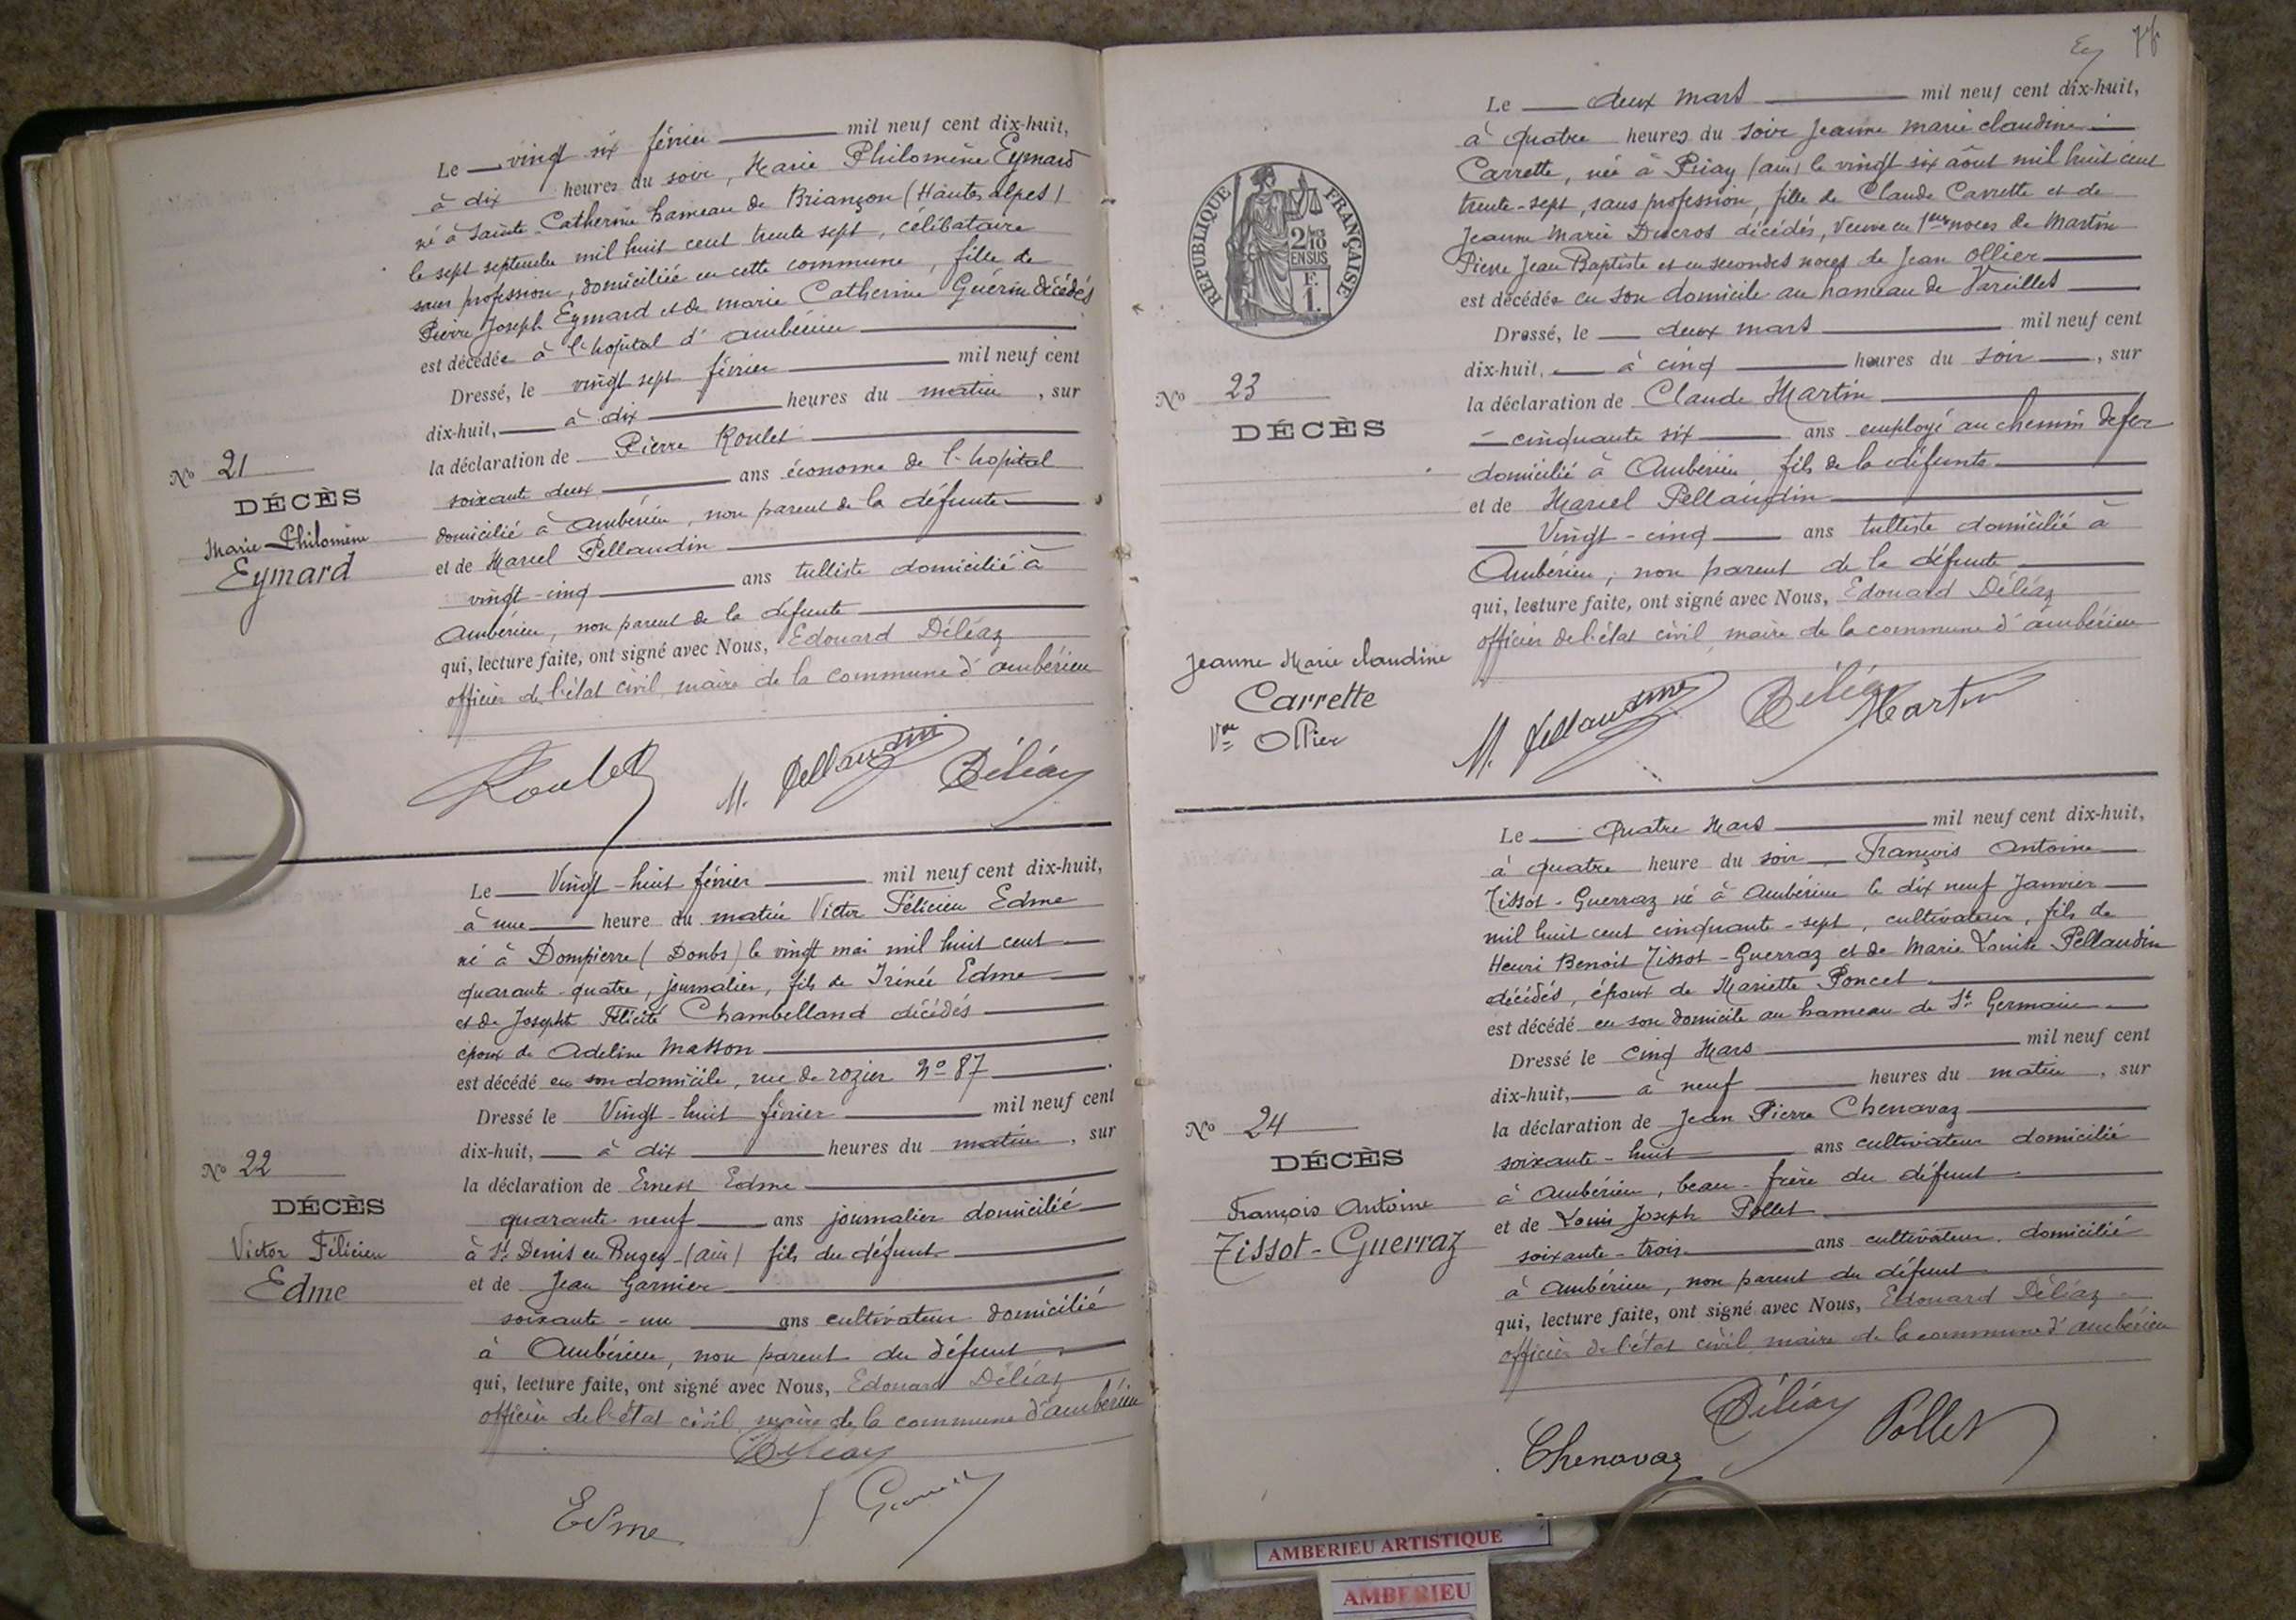 Le vingt six février mil neuf cent dix-huit,
à dix heures du soir, Marie Philomène Eymard
né à Sainte-Catherine hameau de Briançon (Hautes alpes)
le sept septembre mil huit cent trente sept, célibataire
sans profession, domiciliée en cette commune, fille de
Pierre Joseph Eymard et de marie Catherine Guérin décédés
est décédée à l'hopital d'ambérieu
Dressé, le vingt sept février mil neuf cent
dix-huit, à dix heures du matin, sur
la déclaration de Pierre Roulet
soixante deux ans économe de l'hopital
domicilié à Ambérieu, non parent de la défunte
et de Marcel Pellaudin
vingt-cinq ans tulliste domicilié à
Ambérieu, non parent de la défunte
qui, lecture faite, ont signé avec Nous, Edouard Déléaz
officier de l'état civil, maire de la commune d'ambérieu
No 21
DÉCÈS
Marie Philomène
Eymard
Roulet M. Pellaudin Déléaz
Le Vingt-huit février mil neuf cent dix-huit,
à une heure du matin Victor Félicien Edme
né à Dompierre (Doubs) le vingt mai mil huit cent
quarante-quatre, journalier, fils de Irénée Edme
et de Josepht Félicité Chambelland décédés
époux de Adeline Masson
est décédé en son domicile, rue de rozier No 87
Dressé le Vingt-huit février mil neuf cent
dix-huit, à dix heures du matin, sur
la déclaration de Ernest Edme
quarante neuf ans journalier domicilié
à St Denis en Bugey (ain) fils du défunt
et de Jean Garnier
soixante-un ans cultivateur domicilié
à Ambérieu, non parent du défunt
qui, lecture faite, ont signé avec Nous, Edouard Déléaz
officier de l'état civil, maire de la commune d'ambérieu
No 22
DÉCÈS
Victor Félicien
Edme
Déléaz
Edme
Ey 76
RÉPUBLIQUE FRANÇAISE
2/10
EN SUS
F.
1.
Le deux mars mil neuf cent dix-huit,
à quatre heures du soir Jeanne marie claudine
Carrette, née à Priay (ain) le vingt six août mil huit cent
trente-sept, sans profession, fille de Claude Carrette et de
Jeanne Marie Ducros décédés, Veuve en 1eres noces de Martin
Pierre Jean Baptiste et en secondes noces de Jean Ollier
est décédée en son domicile au hameau de Vareilles
Dressé, le deux mars mil neuf cent
dix-huit, à cinq heures du soir, sur
la déclaration de Claude Martin
cinquante six ans employé au chemin de fer
domicilié à Ambérieu fils de la défunte
et de Marcel Pellaudin
Vingt-cinq ans tulliste domicilié à
Ambérieu, non parent de la défunte
qui, lecture faite, ont signé avec Nous, Edouard Déléaz
officier de l'état civil, maire de la commune d'ambérieu
No 23
DÉCÈS
Jeanne Marie claudine
Carrette
Vve Ollier
M. Pellaudin Déléaz Martin
Le Quatre Mars mil neuf cent dix-huit,
à quatre heure du soir, François Antoine
Tissot-Guerraz né à Ambérieu le dix neuf Janvier
mil huit cent cinquante-sept, cultivateur, fils de
Henri Benoit Tissot-Guerraz et de Marie Louise Pellaudin
décédés, époux de Mariette Poncet
est décédé en son domicile au hameau de St Germain
Dressé le Cinq Mars mil neuf cent
dix-huit, à neuf heures du matin, sur
la déclaration de Jean Pierre Chenavaz
soixante-huit ans cultivateur domicilié
à Ambérieu, beau-frère du défunt
et de Louis Joseph Pollet
soixante-trois ans cultivateur domicilié
à Ambérieu, non parent du défunt
qui, lecture faite, ont signé avec Nous, Edouard Déléaz
officier de l'état civil, maire de la commune d'ambérieu
No 24
DÉCÈS
François Antoine
Tissot-Guerraz
Chenavaz Déléaz Pollet
AMBERIEU ARTISTIQUE
AMBERIEU